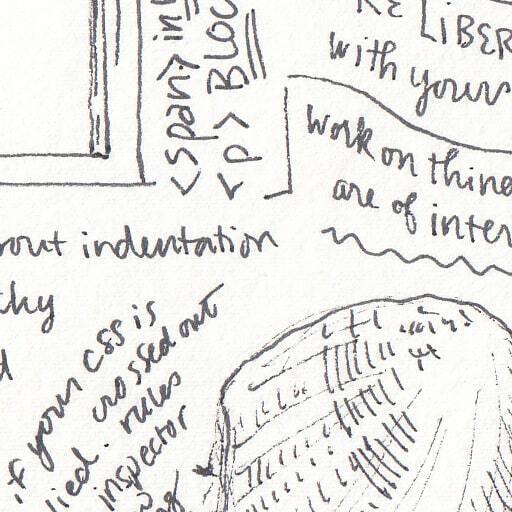 <span> in
<p> Bloc
RE LIBER
with your
Work on thing
are of inter
out indentation
chy
if your css is
crossed out
lied. rules
inspector